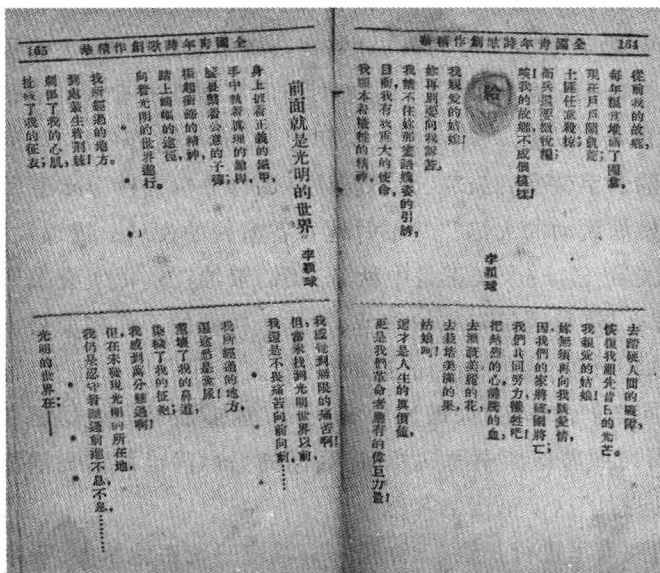 164
全國青年詩歌創作精華
從前我的故鄉,
每年糧食堆滿了園倉,
現在戶戶鬧飢荒
土匪任意殺掠;
唉!我的故鄉不成個模樣!
給
李穎球
我親愛的姑娘!
妳再別要向我訴苦,
我禁不住妳那蜜語嬌姿的引誘,
目前我有我重大的使命,
我願本着犧牲的精神,
去踏破人間的礙障,
恢復我祖先昔日的光芒。
我親愛的姑娘!
妳無須再向我談愛情,
因我們的家將破國將亡;
我們共同努力犧牲吧!
把熱烈的心沸騰的血,
去灌溉美麗的花,
去栽培美滿的果,
姑娘呵!
這才是人生的真價值,
更是我們革命者應有的偉巨力量!
全國青年詩歌創作精華
165
前面就是光明的世界
李穎球
身上披着正義的鐵甲,
手中執着真理的鎗桿,
腰裏繫着公意的子彈;
振起衝鋒的精神,
踏上崎嶇的途徑,
向着光明的世界進行。
我所經過的地方,
到處叢生着荊棘,
刺傷了我的心肌,
扯破了我的征衣;
我感着到無限的痛苦啊!
但當未找到光明世界以前,
我還是不畏痛苦向前向前………
我所經過的地方,
沿途悉是糞尿!
薰壞了我的鼻道,
染穢了我的征袍;
我感到萬分難過啊!
但在未發現光明的所在地,
我仍是忍守着難過前進不息不息………
光明的世界在——